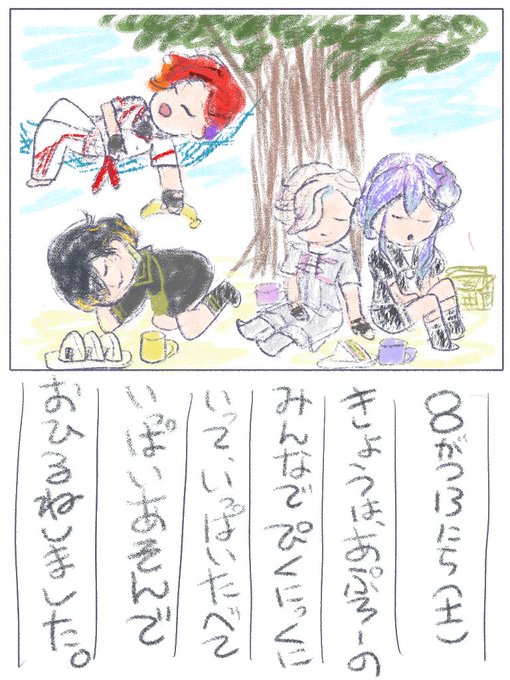 8がつ13にち(土)
きょうは、あぷろーの
みんなでぴくにっくに
いって、いっぱいたべて
いっぱいあそんで
おひるねしました。